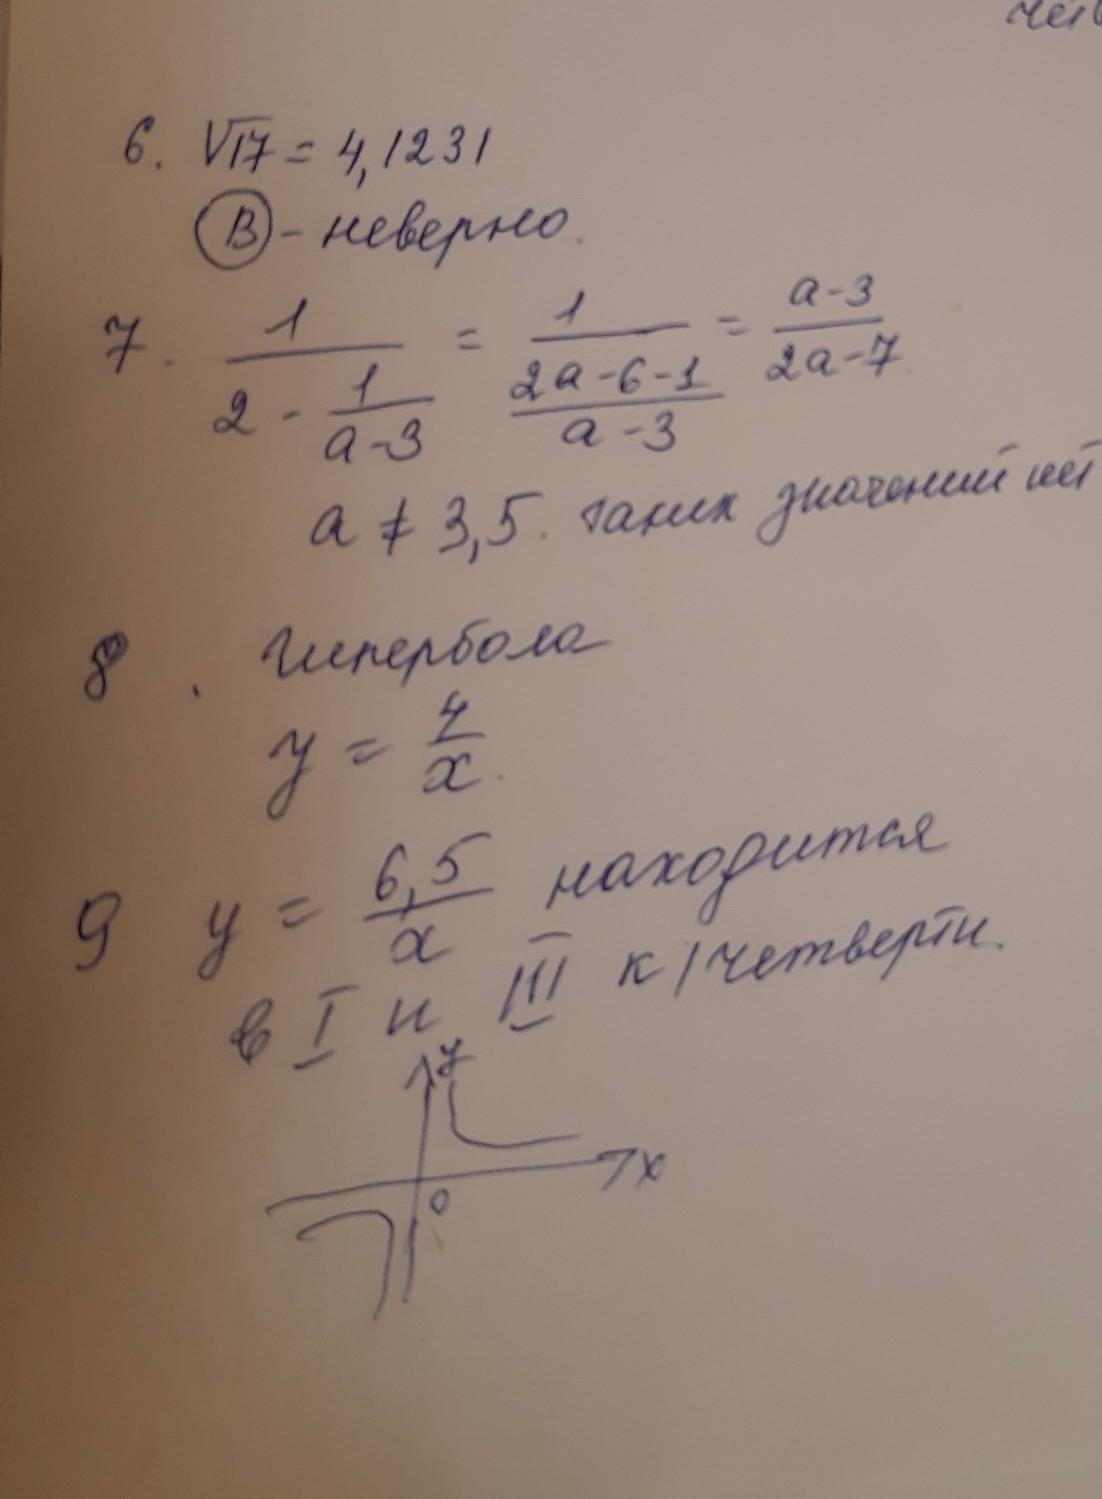 6. √17 = 4,1231
В - неверно.
7. 1/(2 - 1/(a-3)) = 1/((2a-6-1)/(a-3)) = (a-3)/(2a-7)
a ≠ 3,5. таких значений нет
8. Гипербола
y = 4/x.
9 y = 6,5/x находится
в I и III к/четверти.
y
x
0